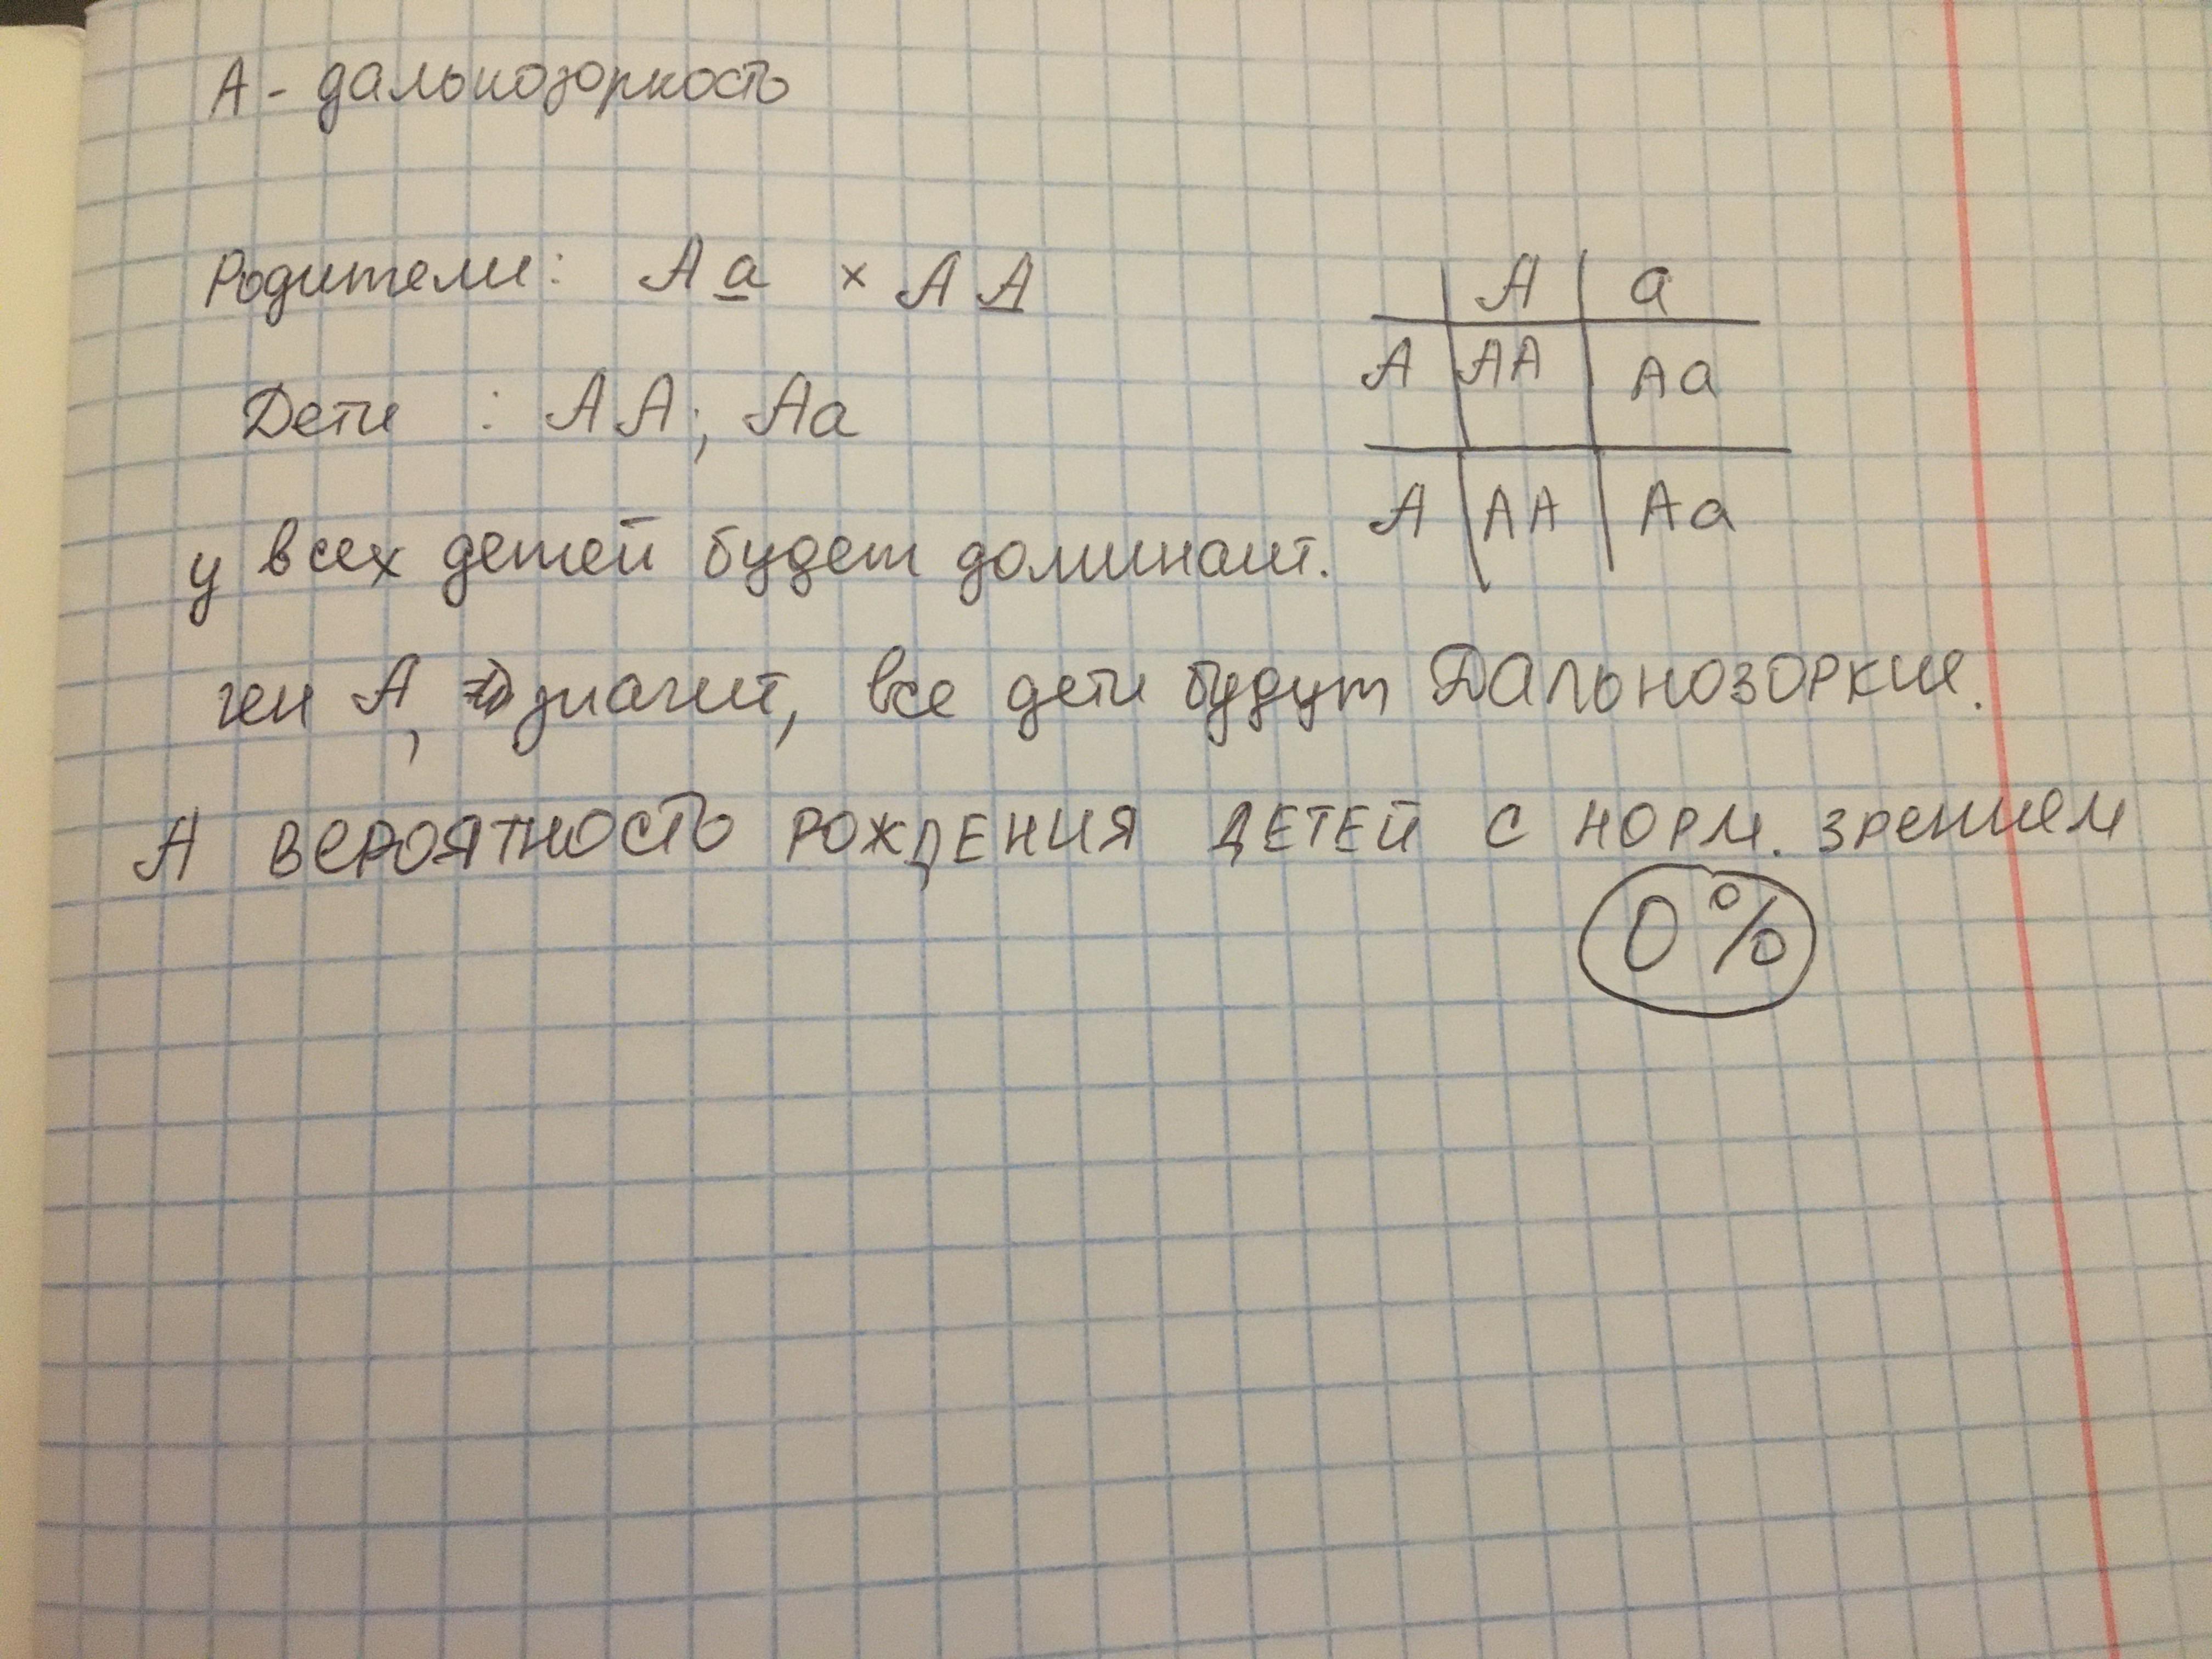 А - дальнозоркость
Родители: Аа × АА
Дети : АА; Аа
А а
А АА Аа
А АА Аа
у всех детей будет доминант.
ген А, значит, все дети будут Дальнозоркие.
А вероятность рождения детей с норм. зрением
0%